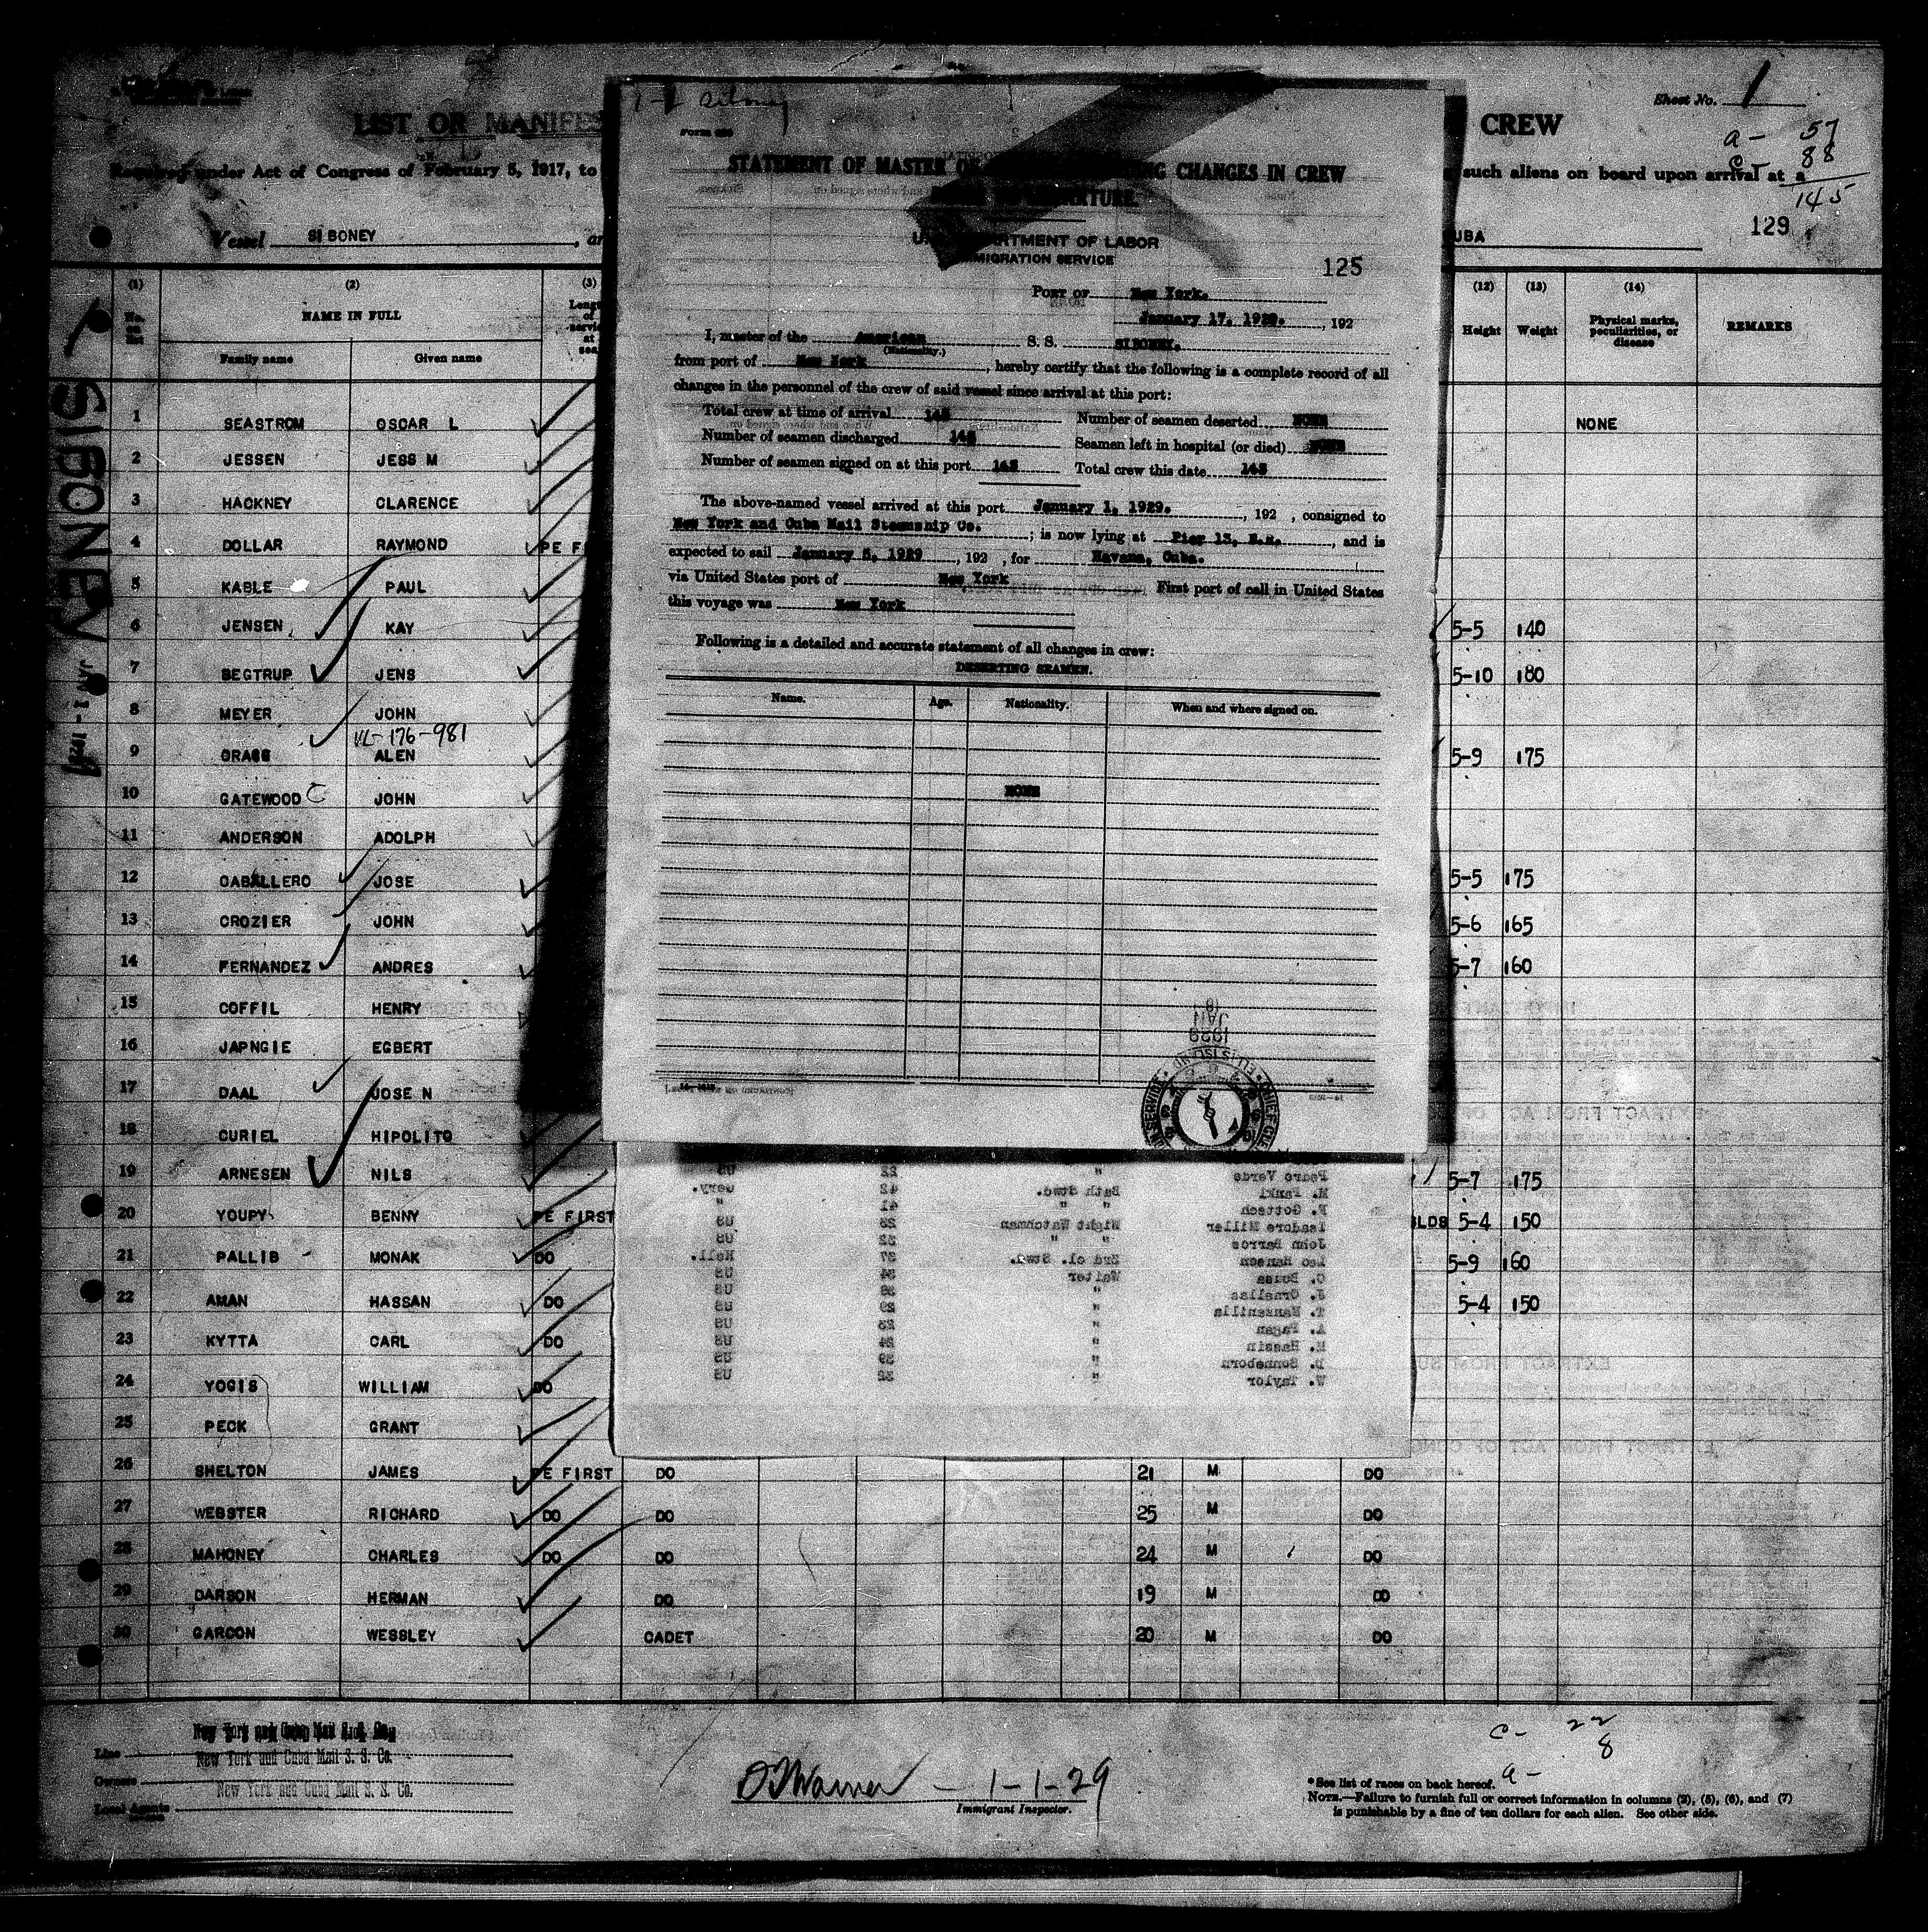 Sheet No. 1
LIST OR MANIFES
CREW
a- 57
88
145
Required under Act of Congress of February 5, 1917, to
such aliens on board upon arrival at a
Vessel SIBONEY, ar
UBA
129
SIBONEY JAN 1 - 1929
(1) (2) (3) (12) (13) (14)
NAME IN FULL
Family name Given name
Height Weight Physical marks, peculiarities, or disease REMARKS
1 SEASTROM OSCAR L NONE
2 JESSEN JESS M
3 HACKNEY CLARENCE
4 DOLLAR RAYMOND PE F
5 KABLE PAUL
6 JENSEN KAY 5-5 140
7 BEGTRUP JENS 5-10 180
8 MEYER JOHN
VL-176-981
9 GRASS ALEN 5-9 175
10 GATEWOOD C JOHN
11 ANDERSON ADOLPH
12 CABALLERO JOSE 5-5 175
13 CROZIER JOHN 5-6 165
14 FERNANDEZ ANDRES 5-7 160
15 COFFIL HENRY
16 JAPNGIE EGBERT
17 DAAL JOSE N
18 CURIEL HIPOLITO
19 ARNESEN NILS 5-7 175
20 YOUPY BENNY PE FIRST LDS 5-4 150
21 PALLIB MONAK DO 5-9 160
22 AMAN HASSAN DO 5-4 150
23 KYTTA CARL DO
24 YOGIS WILLIAM DO
25 PECK GRANT
26 SHELTON JAMES PE FIRST DO 21 M DO
27 WEBSTER RICHARD DO DO 25 M DO
28 MAHONEY CHARLES DO DO 24 M DO
29 DARSON HERMAN DO 19 M DO
30 GARCON WESSLEY CADET 20 M DO
Line New York and Cuba Mail S. S. Co.
Owners New York and Cuba Mail S. S. Co.
Local Agents New York and Cuba Mail S. S. Co.
1-1-29
Immigrant Inspector.
C- 22
8
a-
*See list of races on back hereof.
NOTE.—Failure to furnish full or correct information in columns (2), (5), (6), and (7)
is punishable by a fine of ten dollars for each alien. See other side.
1-1 Siboney
STATEMENT OF MASTER OF NG CHANGES IN CREW
U. DEPARTMENT OF LABOR
IMMIGRATION SERVICE
125
PORT OF New York.
January 17, 1929., 192
I, master of the American S. S. SIBONEY.
(Nationality.)
from port of New York, hereby certify that the following is a complete record of all
changes in the personnel of the crew of said vessel since arrival at this port:
Total crew at time of arrival 145 Number of seamen deserted NONE
Number of seamen discharged 145 Seamen left in hospital (or died) NONE
Number of seamen signed on at this port 145 Total crew this date 145
The above-named vessel arrived at this port January 1, 1929., 192 , consigned to
New York and Cuba Mail Steamship Co.; is now lying at Pier 13, E.R., and is
expected to sail January 5, 1929, 192 , for Havana, Cuba.
via United States port of New York First port of call in United States
this voyage was New York
Following is a detailed and accurate statement of all changes in crew:
DESERTING SEAMEN.
Name. Age. Nationality. When and where signed on.
NONE
1929
JAN
18
Pedro Verde " 22 US
M. Pankl Bath Stwd. 42 Gery.
F. Gottsch " " 41 "
Isadore Miller Night Watchman 28 US
John Barros " " 32 US
Leo Hansen 2nd cl. Stwd. 37 Holl.
C. Borsa Waiter 34 US
J. Ornellas " 38 US
T. Mansanilla " 29 US
A. Pagan " 23 US
H. Hassin " 24 US
D. Sonneborn " 39 US
W. Taylor " 32 US